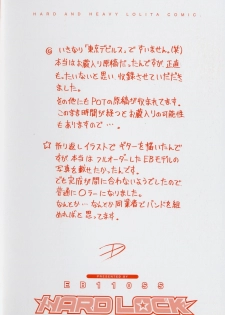 HARD AND HEAVY LOLITA COMIC
◎ いきなり「東京デビルス」ですいません。(笑)
本当はお蔵入り原稿だったんですが正直
もったいないと思い収録させていただきまし
た。
その他にもPOTの原稿が収まれてますが
この吉時間が経つとお蔵入りの可能性
もありますので…。
☆ 折り返しイラストでギターを描いたんで
すが本当はフルオーダーしたEBモデルの
写真を載せたかったんです。
でも完成が間に合わないようでしたので
普通にカラーになりました。
なんとか…なんとか同業者でバンドを組
めればと思ってます。
PRESENTED BY
EB110SS
HARD LOCK